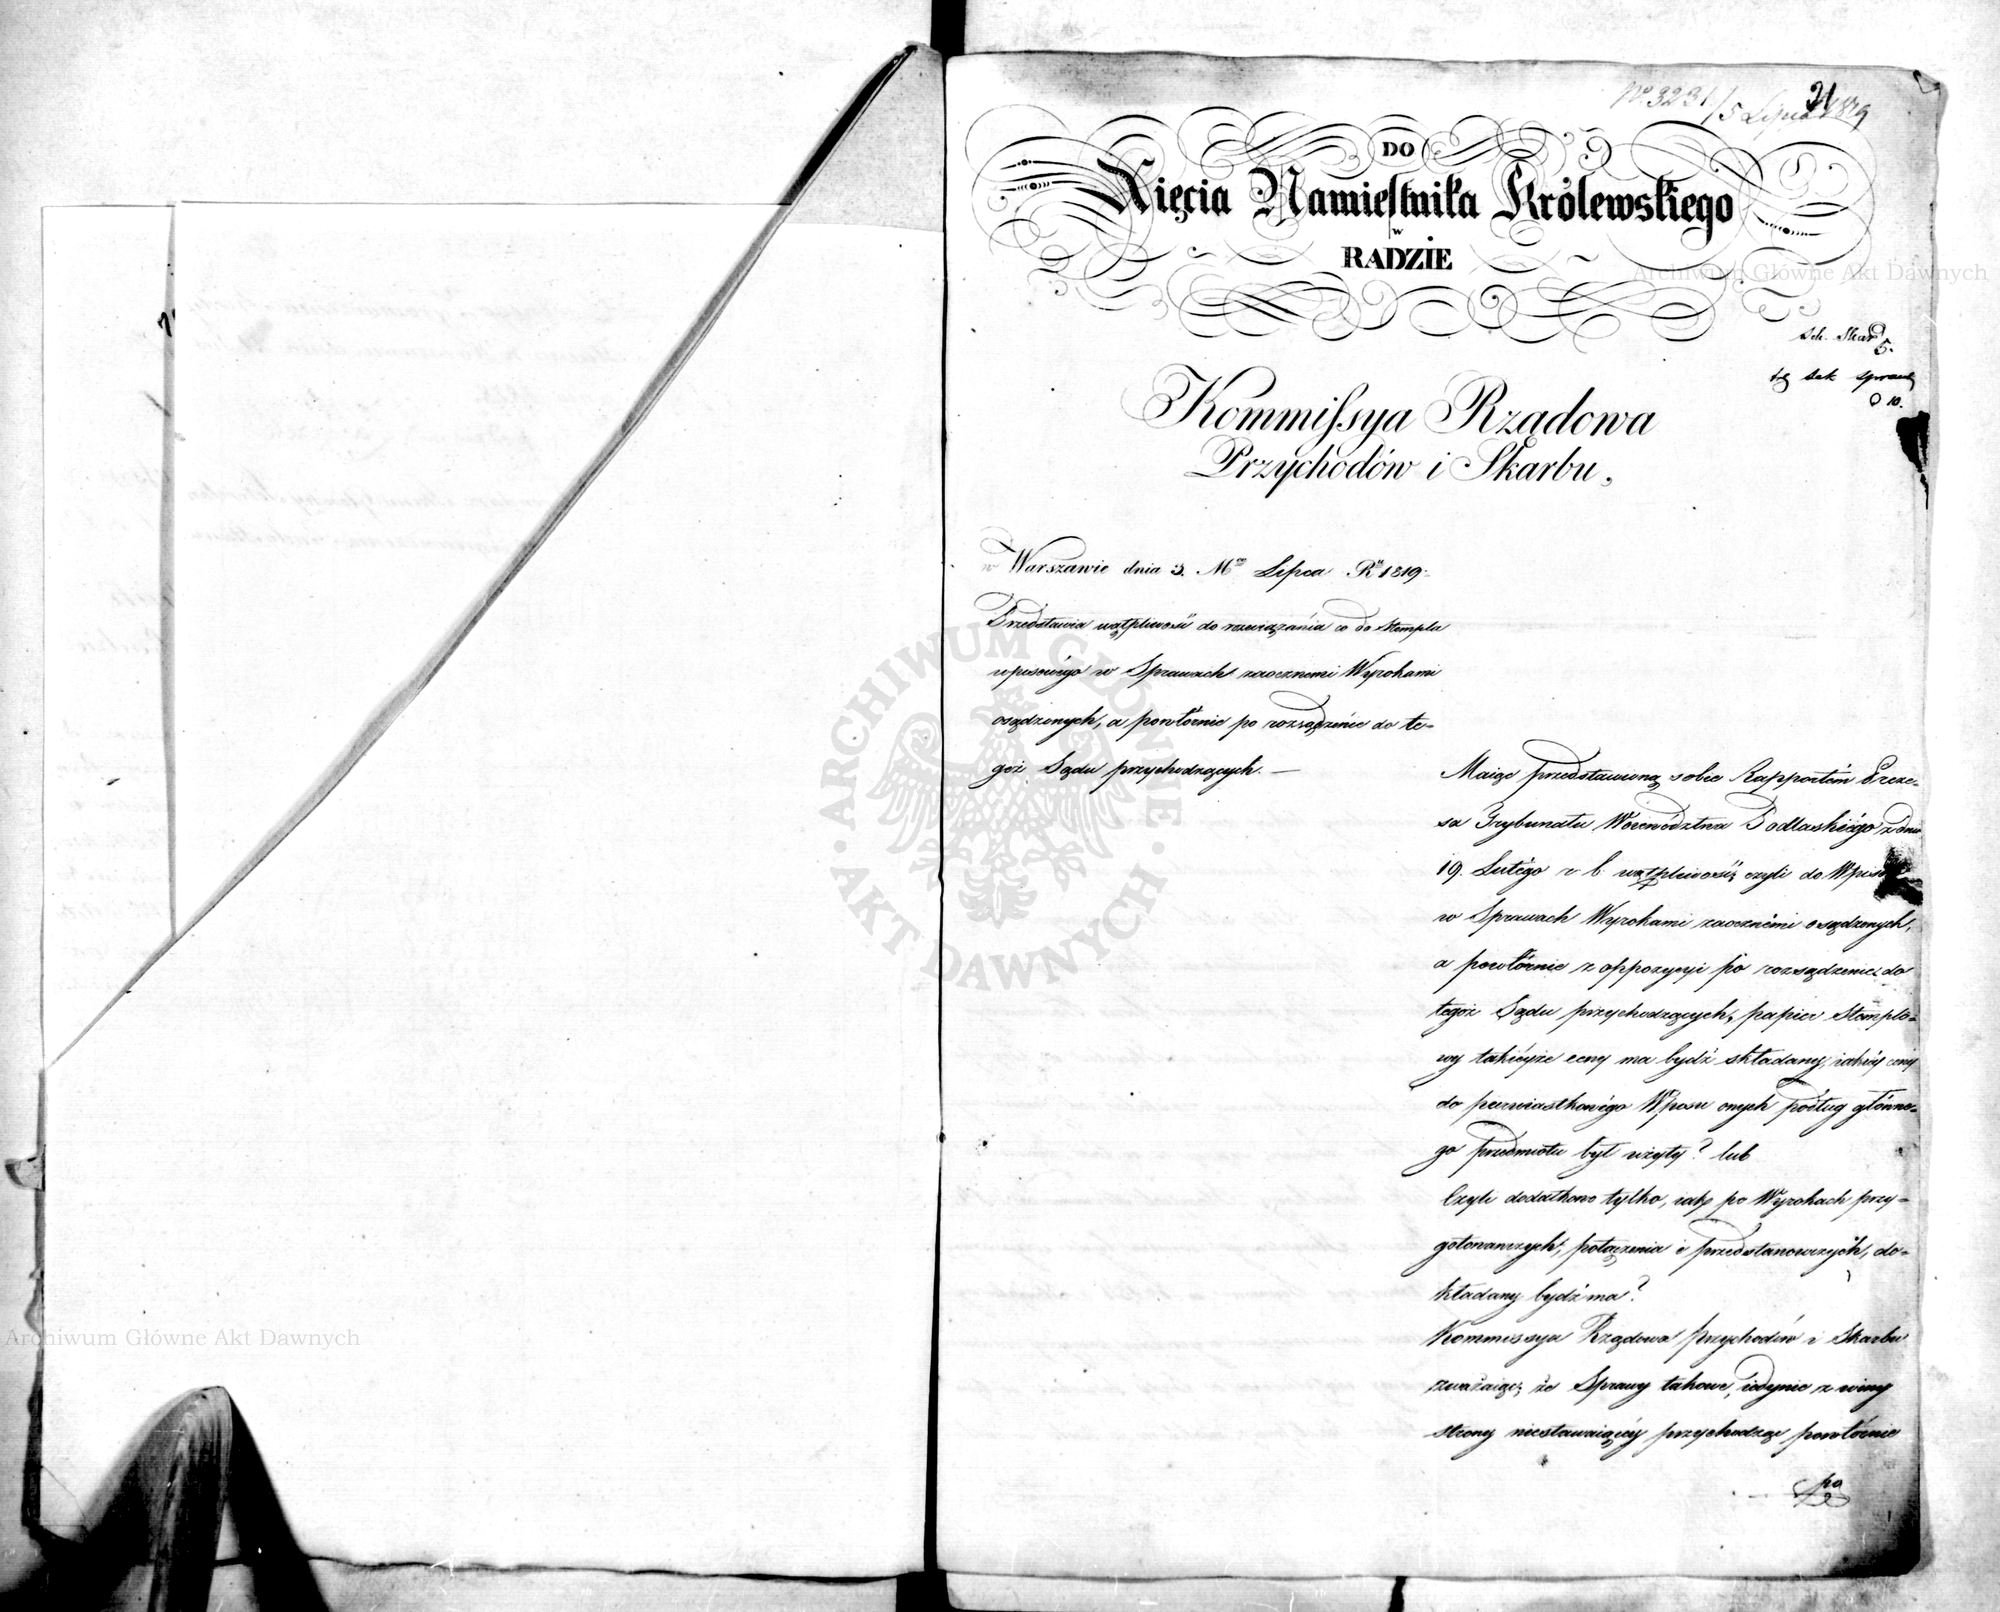 No 3231/5 Lipca 1819
21
DO
Xięcia Namiestnika Królewskiego
w
RADZIE
Sek. Skar
5.
sek
10.
Kommissya Rządowa
Przychodów i Skarbu,
w Warszawie dnia 3. Mca Lipca Ru 1819.
Przedstawia wątpliwość do rozwiązania co do Stempla
wpisowégo w Sprawach zaocznemi Wyrokami
osądzonych, a powtórnie po rozsądzenie do te-
goż Sądu przychodzących. —
Maiąc przedstawioną sobie Rapportem Preze-
sa Trybunału Woiewództwa Podlaskiégo z dnia
19. Lutégo r. b. wątpliwość, czyli do Wpisu
w Sprawach Wyrokami zaocznémi osądzonych,
a powtórnie z oppozycyi po rozsądzenie do
tegoż Sądu przychodzących, papier Stemplo-
wy takiéyże ceny ma bydź składany, iakiéy ceny
do pierwiastkowégo Wpisu onych podług główne-
go przedmiotu był użyty? lub
Czyli dodatkowo tylko, iak po Wyrokach przy-
gotowawczych, połączenia i przedstanowczych, do-
kładany bydź ma?
Kommissya Rządowa Przychodów i Skarbu
zważaiąc, że Sprawy takowe, iedynie z winy
strony niestawaiącéy przychodząc powtórnie
po
ARCHIWUM GŁÓWNE AKT DAWNYCH
Archiwum Główne Akt Dawnych
Archiwum Główne Akt Dawnych